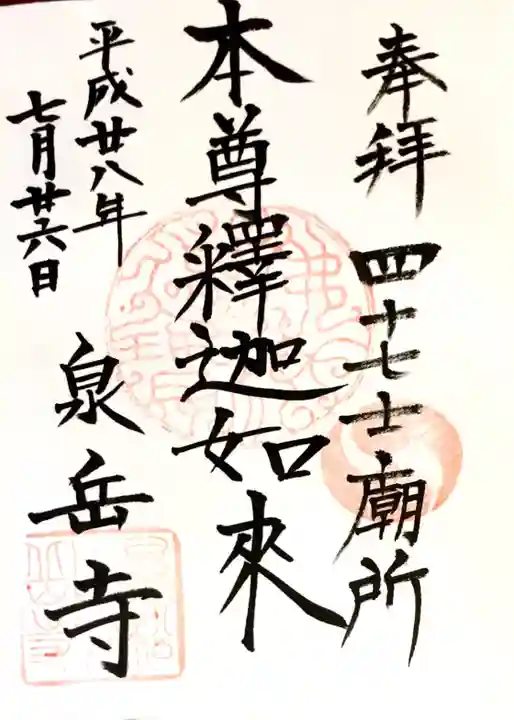 奉拝 四十七士廟所
本尊釋迦如來
平成廿八年
七月廿六日
泉岳寺